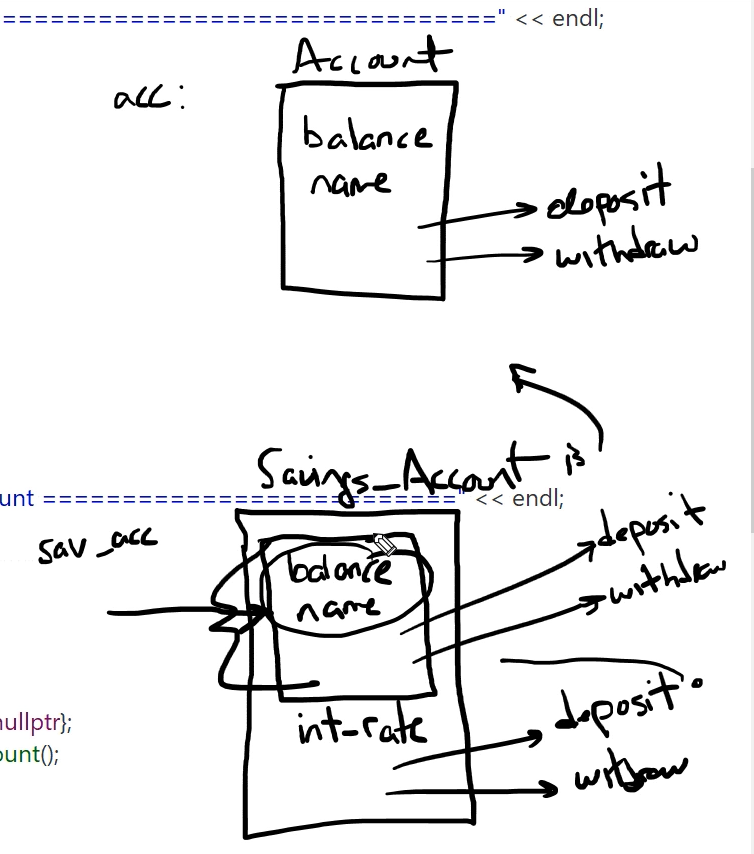 ================================" << endl;
Account
acc:
balance
name
deposit
withdraw
Savings_Account is
unt =========================" << endl;
sav_acc
balance
name
deposit
withdraw
int_rate
deposit
witdraw
nullptr};
ount();